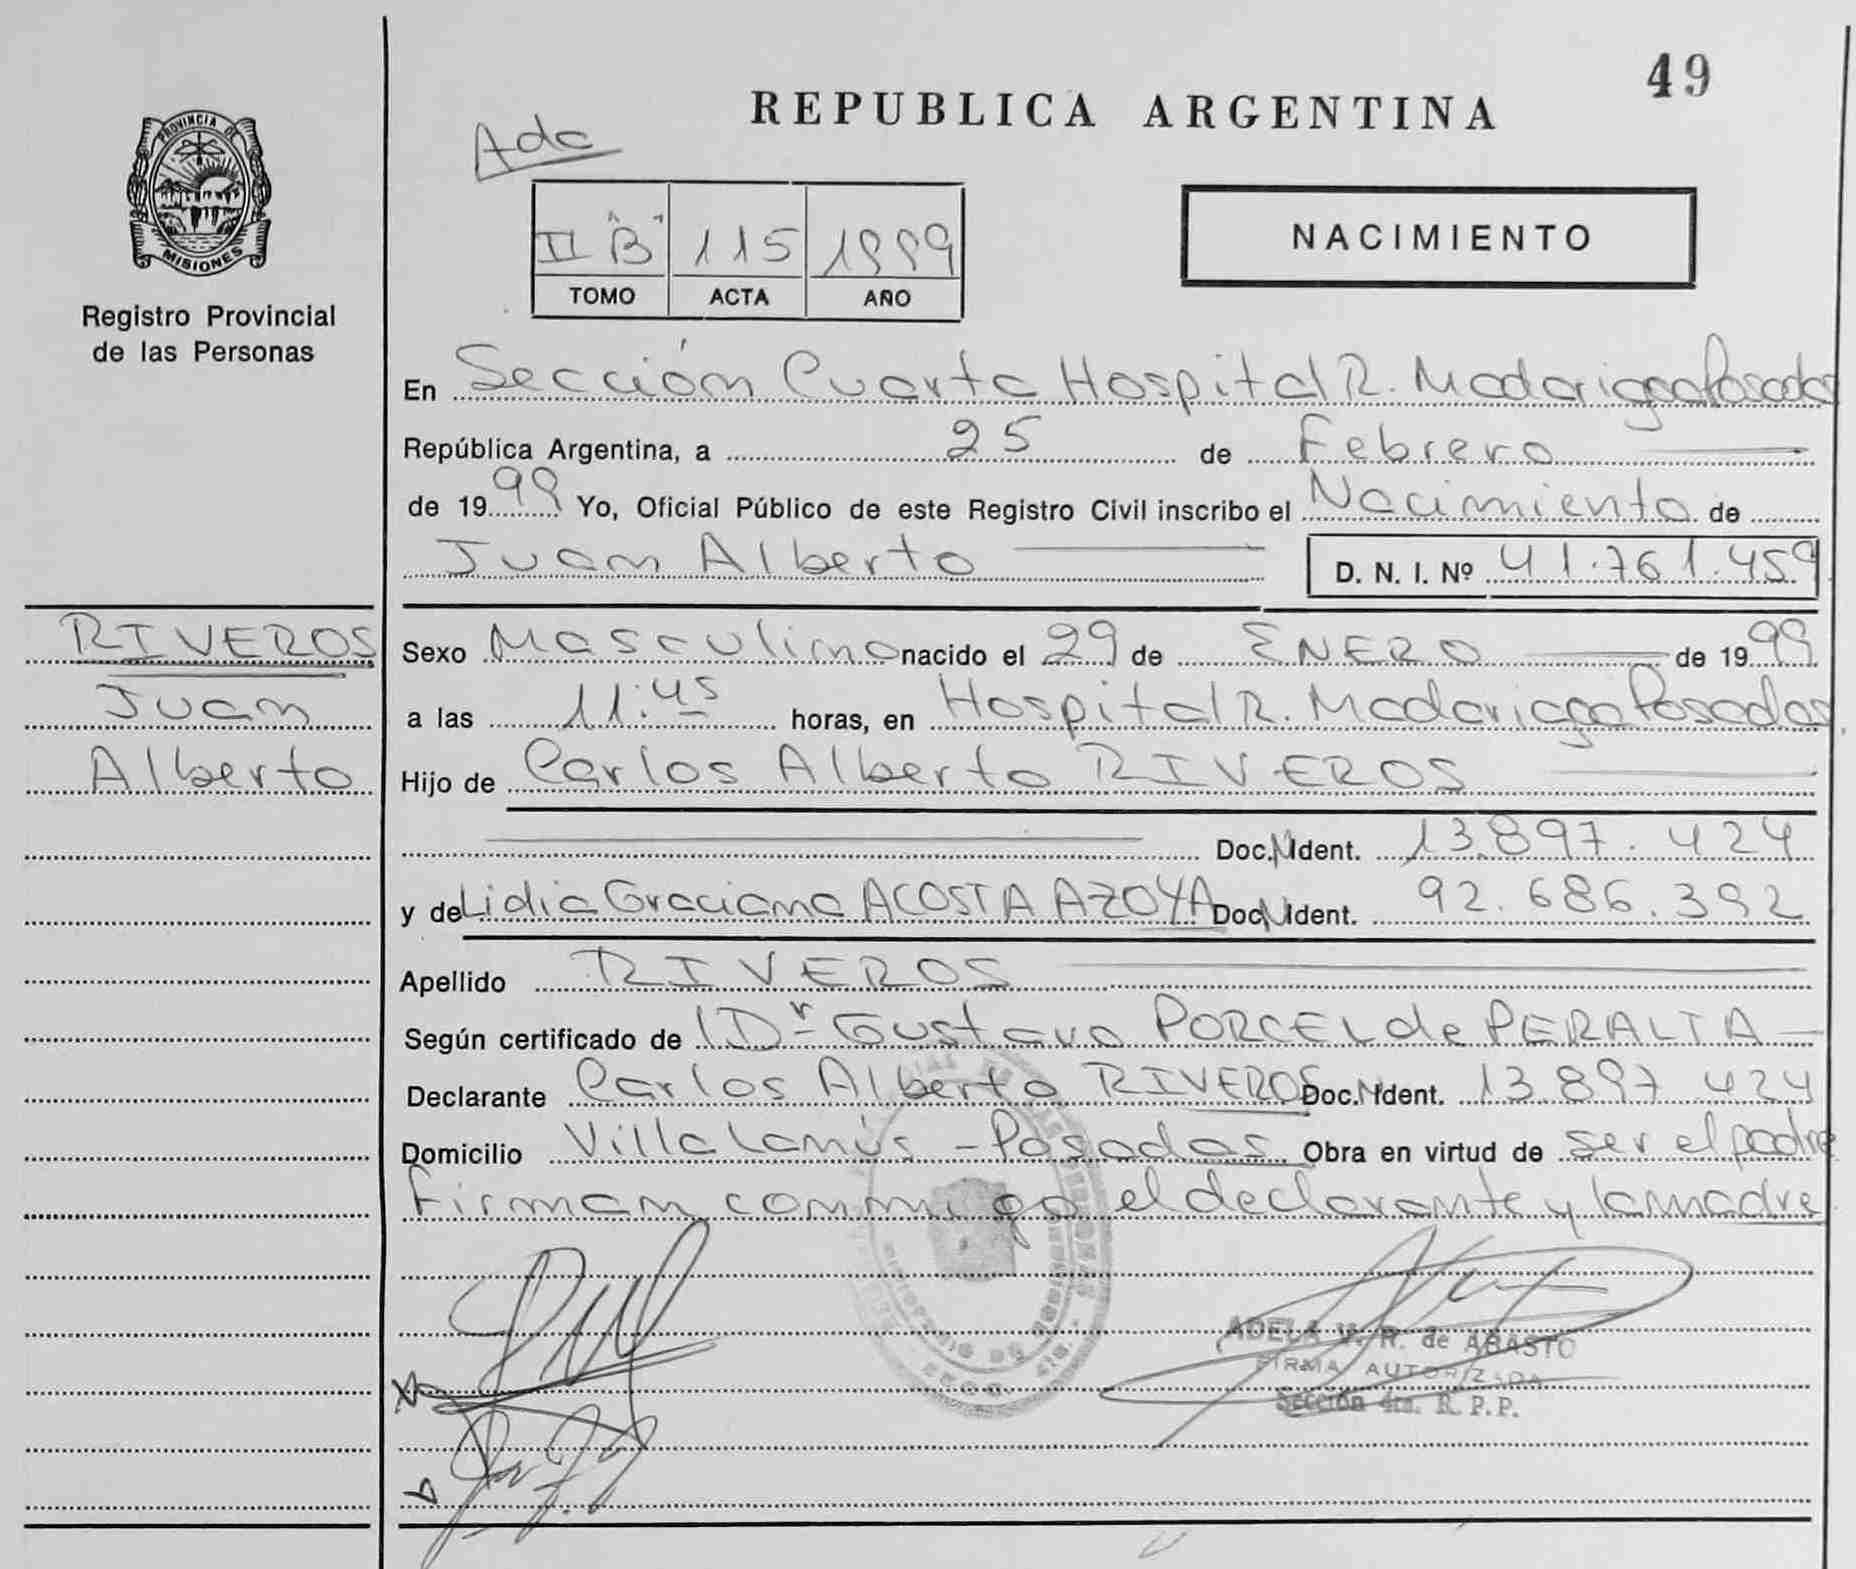 49
REPUBLICA ARGENTINA
Adc
PROVINCIA DE
MISIONES
Registro Provincial
de las Personas
II "B" 115 1999
TOMO ACTA AÑO
NACIMIENTO
En Sección Cuarta Hospital R. Madariaga Posadas
República Argentina, a 25 de Febrero
de 1999 Yo, Oficial Público de este Registro Civil inscribo el Nacimiento de
Juan Alberto D. N. I. Nº 41.761.459
RIVEROS
Juan
Alberto
Sexo Masculino nacido el 29 de ENERO de 1999
a las 11:45 horas, en Hospital R. Madariaga Posadas
Hijo de Carlos Alberto RIVEROS
Doc. N Ident. 13.897.424
y de Lidia Graciana ACOSTA AZOYA Doc. N Ident. 92.686.392
Apellido RIVEROS
Según certificado de Dr Gustavo PORCEL de PERALTA
Declarante Carlos Alberto RIVEROS Doc. N Ident. 13.897.424
Domicilio Villa Lanús - Posadas Obra en virtud de ser el padre
Firman conmigo el declarante y la madre
ADELA R. de ABASTO
FIRMA AUTORIZADA
Sección 4ta. R. P. P.